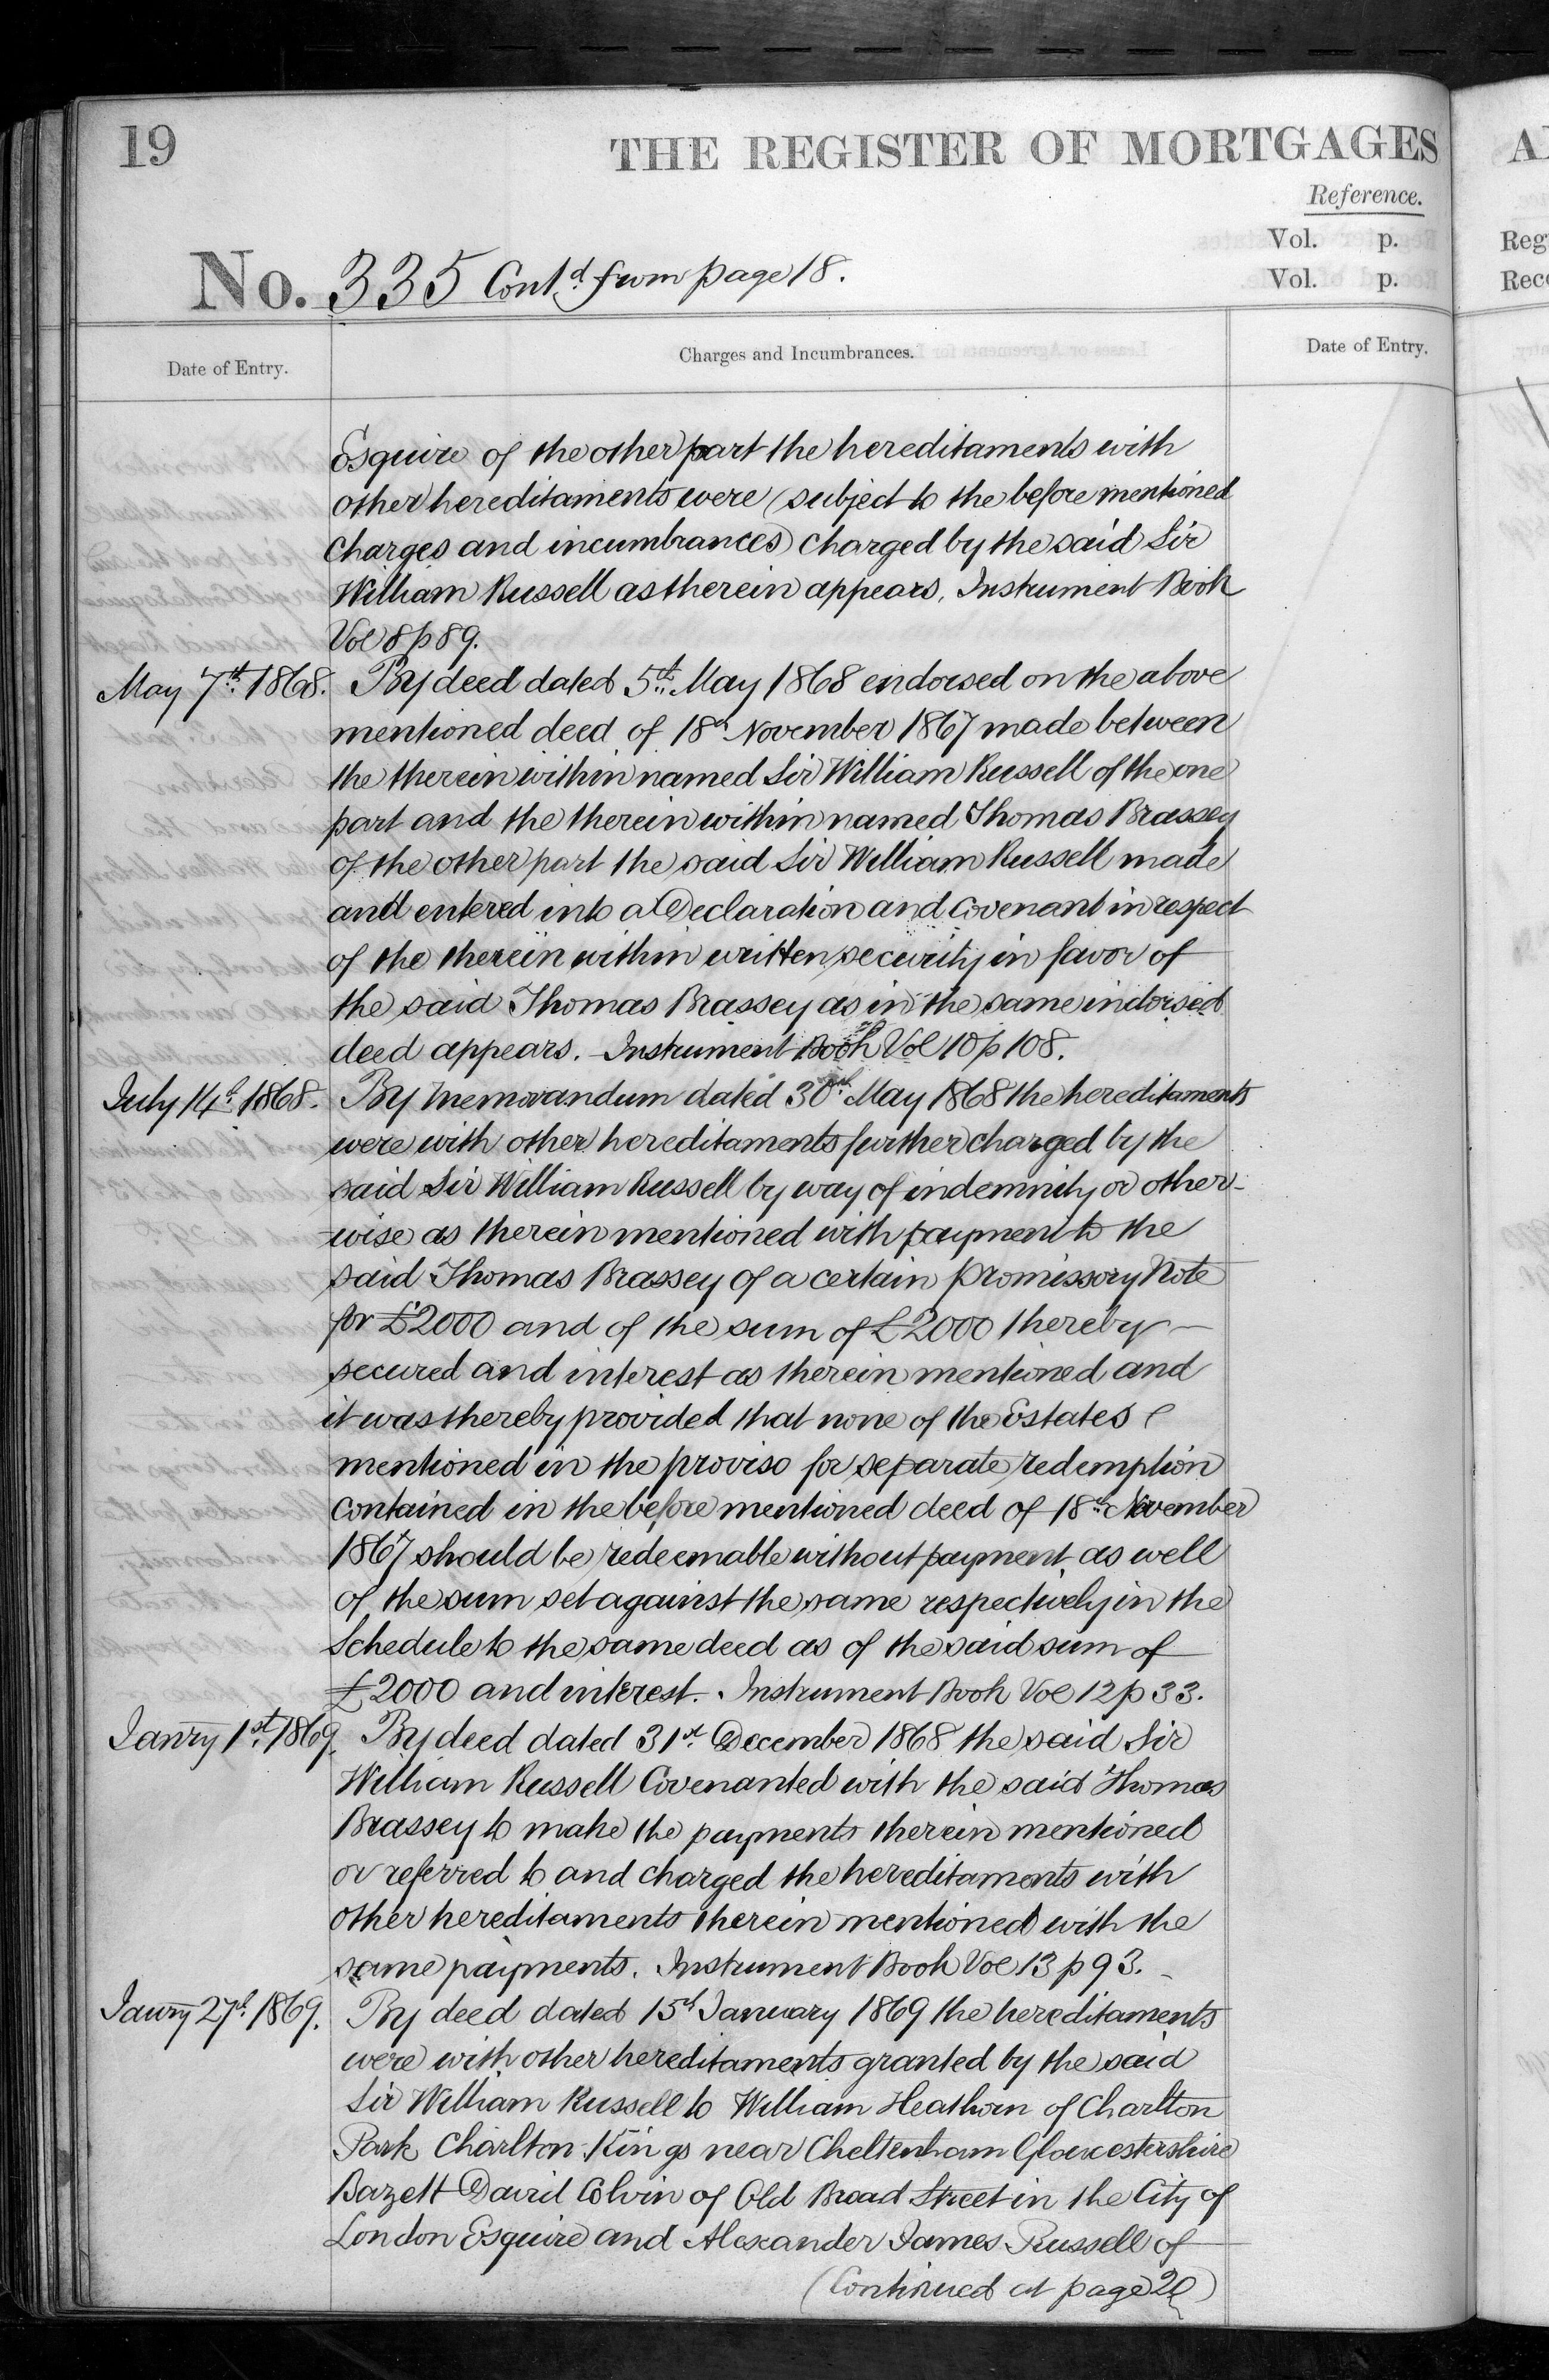 19
THE REGISTER OF MORTGAGES
Reference.
Vol. p.
Vol. p.
No. 335 Contd. from page 18.
Date of Entry.
Charges and Incumbrances.
Date of Entry.
Esquire of the other part the hereditaments with
other hereditaments were (subject to the before mentioned
Charges and incumbrances) charged by the said Sir
William Russell as therein appears. Instrument Book
Vol 8 p 89.
May 7th. 1868. By deed dated 5th. May 1868 endorsed on the above
mentioned deed of 18th November 1867 made between
the therein within named Sir William Russell of the one
part and the therein within named Thomas Brassey
of the other part the said Sir William Russell made
and entered into a Declaration and Covenant in respect
of the therein within written security in favor of
the said Thomas Brassey as in the same indorsed
deed appears. Instrument Book Vol 10 p 108.
July 14th. 1868. By Memorandum dated 30th. May 1868 the hereditaments
were with other hereditaments further charged by the
said Sir William Russell by way of indemnity or other-
-wise as therein mentioned with payment to the
said Thomas Brassey of a certain promissory Note
for £2000 and of the sum of £2000 thereby
secured and interest as therein mentioned and
it was thereby provided that none of the Estates
mentioned in the proviso for separate redemption
contained in the before mentioned deed of 18th. November
1867 should be redeemable without payment as well
of the sum set against the same respectively in the
Schedule to the same deed as of the said sum of
£2000 and interest. Instrument Book Vol 12 p 33.
Janry 1st. 1869. By deed dated 31st. December 1868 the said Sir
William Russell Covenanted with the said Thomas
Brassey to make the payments therein mentioned
or referred to and charged the hereditaments with
other hereditaments therein mentioned with the
same payments. Instrument Book Vol 13 p 93.
Janry 27th. 1869. By deed dated 15th January 1869 the hereditaments
were with other hereditaments granted by the said
Sir William Russell to William Heathorn of Charlton
Park Charlton Kings near Cheltenham Gloucestershire
Bazett David Colvin of Old Broad Street in the City of
London Esquire and Alexander James Russell of
(Continued at page 20)
A
Reg
Rec